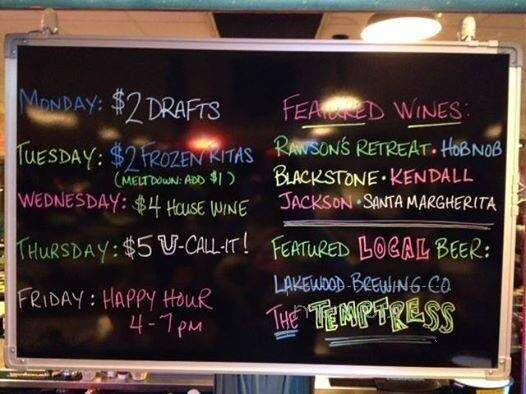 MONDAY: $2 DRAFTS
TUESDAY: $2 FROZEN RITAS
(MELTDOWN: ADD $1)
WEDNESDAY: $4 HOUSE WINE
THURSDAY: $5 U-CALL-IT!
FRIDAY: HAPPY HOUR
4-7PM
FEATURED WINES:
RAWSON'S RETREAT • HOBNOB
BLACKSTONE • KENDALL
JACKSON • SANTA MARGHERITA
FEATURED LOCAL BEER:
LAKEWOOD BREWING CO
THE TEMPTRESS